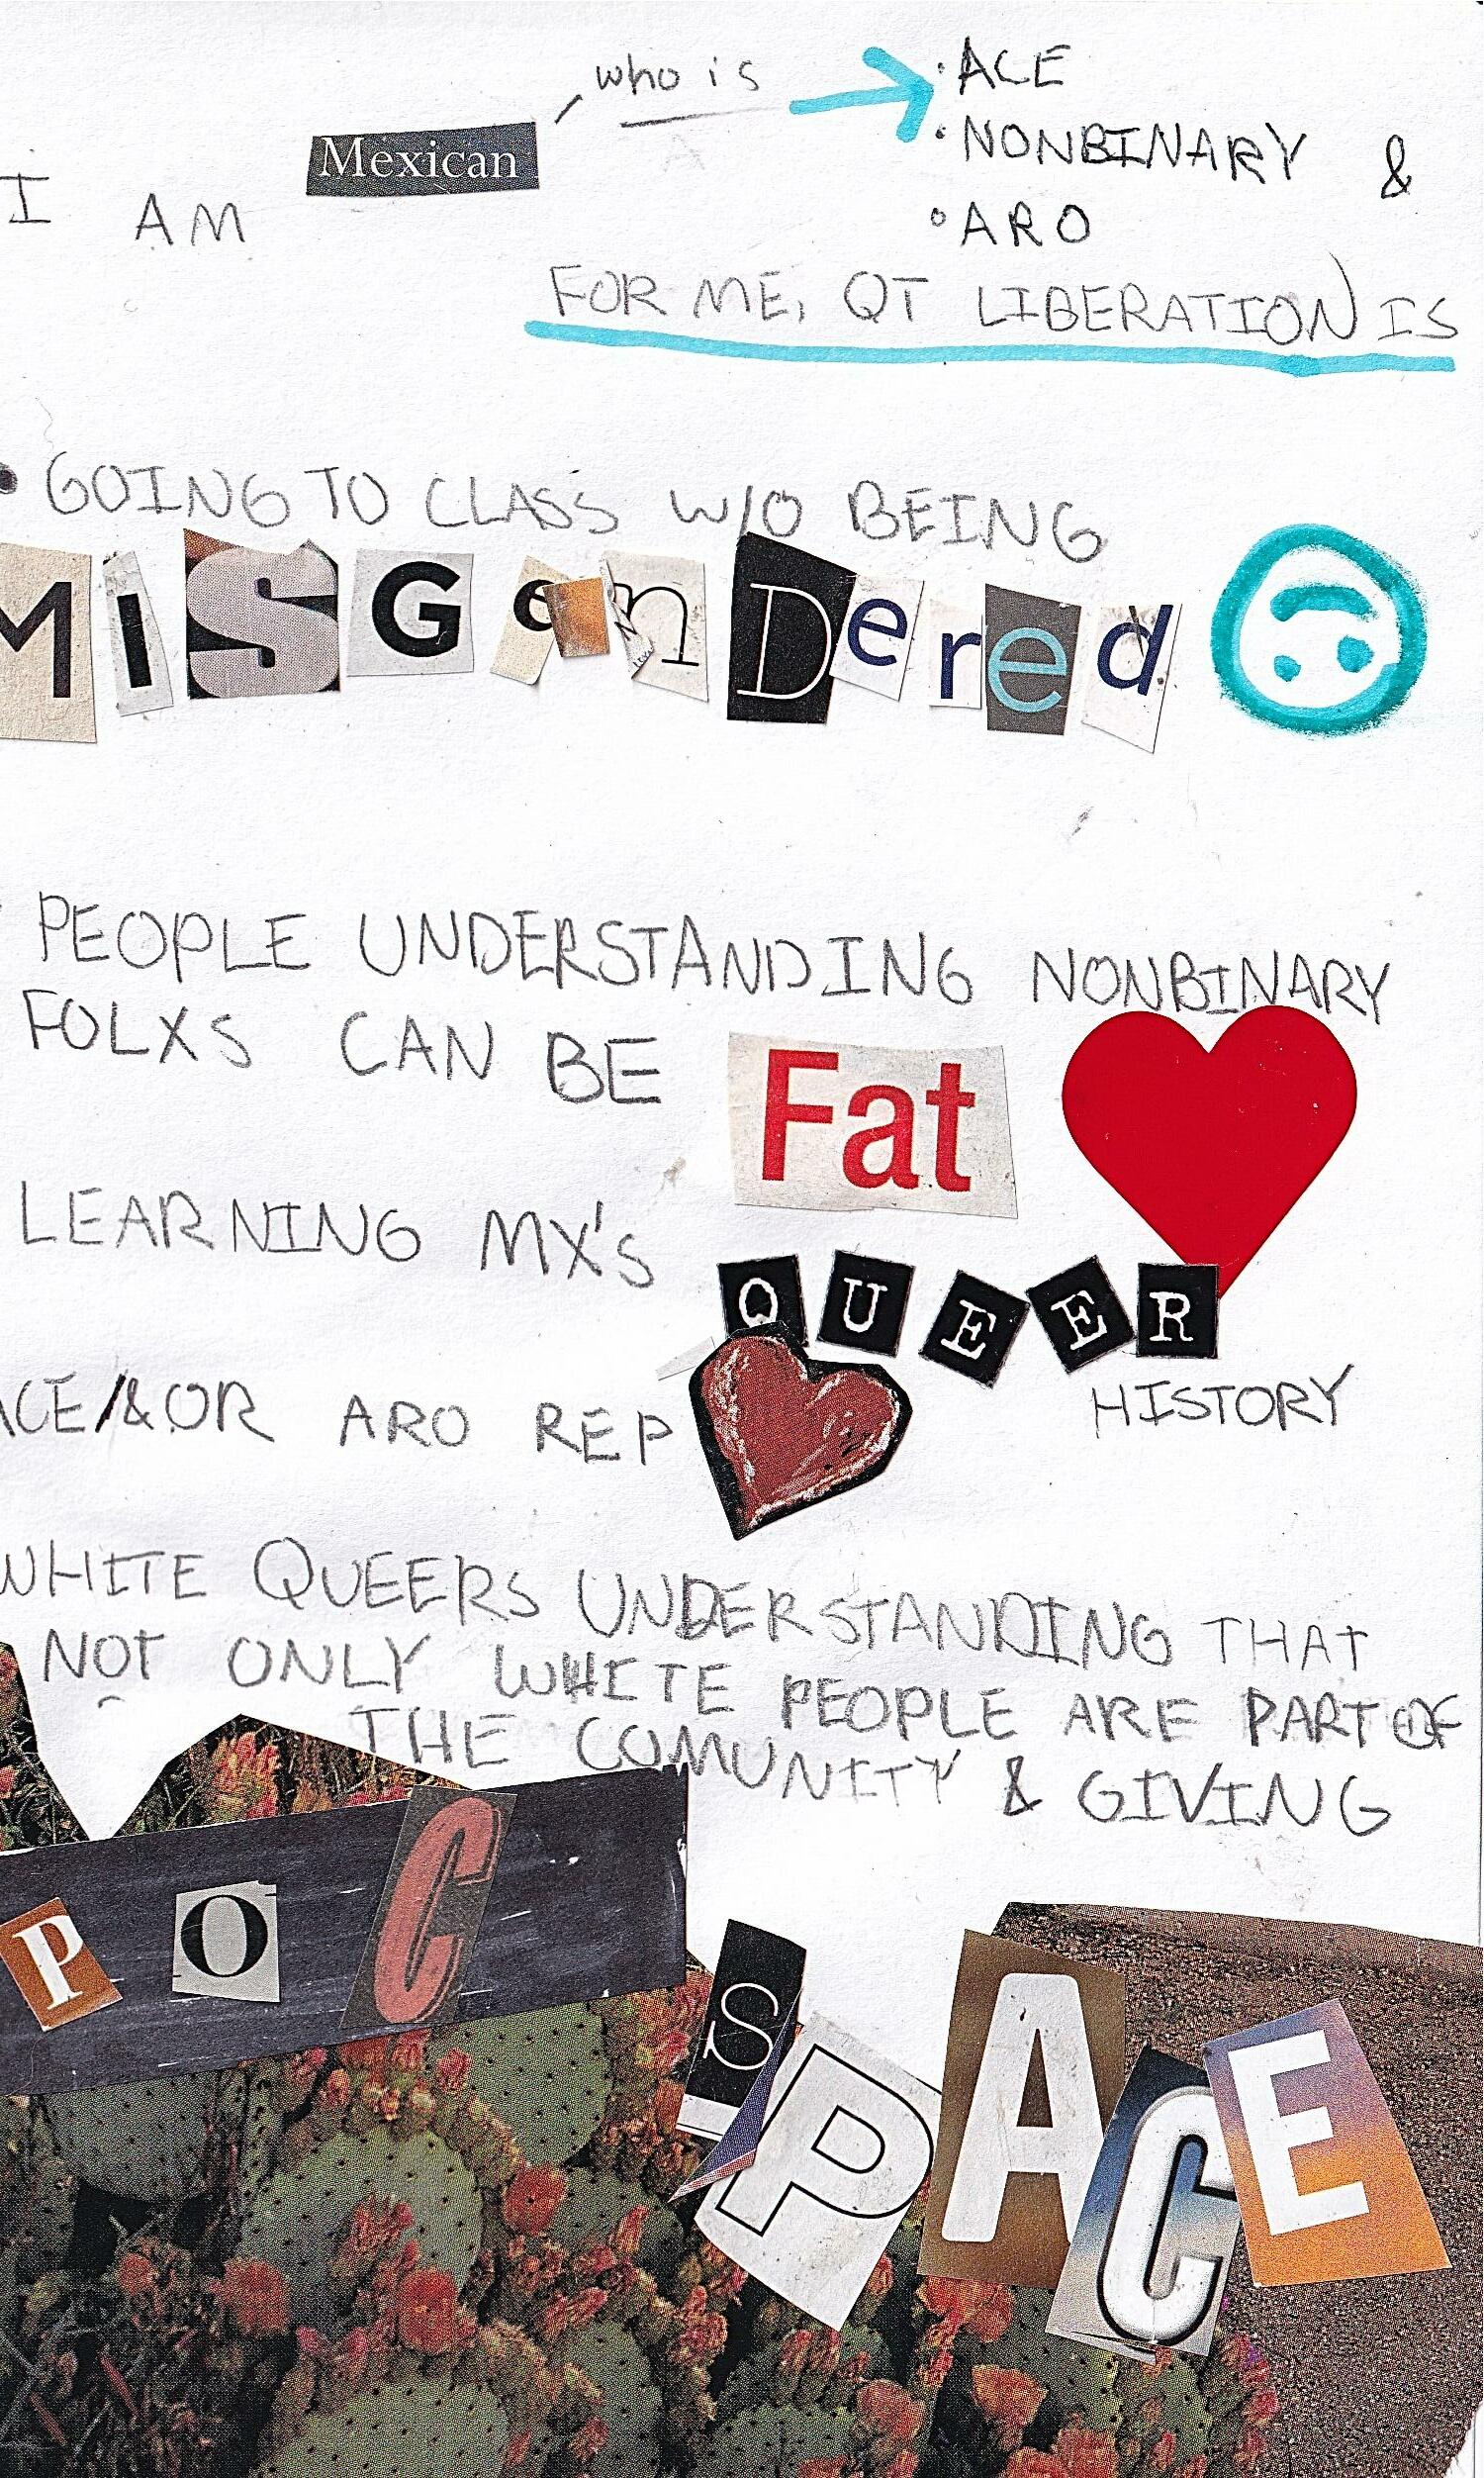 who is
• ACE
• NONBINARY &
• ARO
I AM Mexican
FOR ME, QT LIBERATION IS
• GOING TO CLASS W/O BEING
MiSGenDered
PEOPLE UNDERSTANDING NONBINARY
FOLXS CAN BE Fat
LEARNING MX'S QUEER
HISTORY
ACE/&OR ARO REP
WHITE QUEERS UNDERSTANDING THAT
NOT ONLY WHITE PEOPLE ARE PART OF
THE COMUNITY & GIVING
POC
SPACE